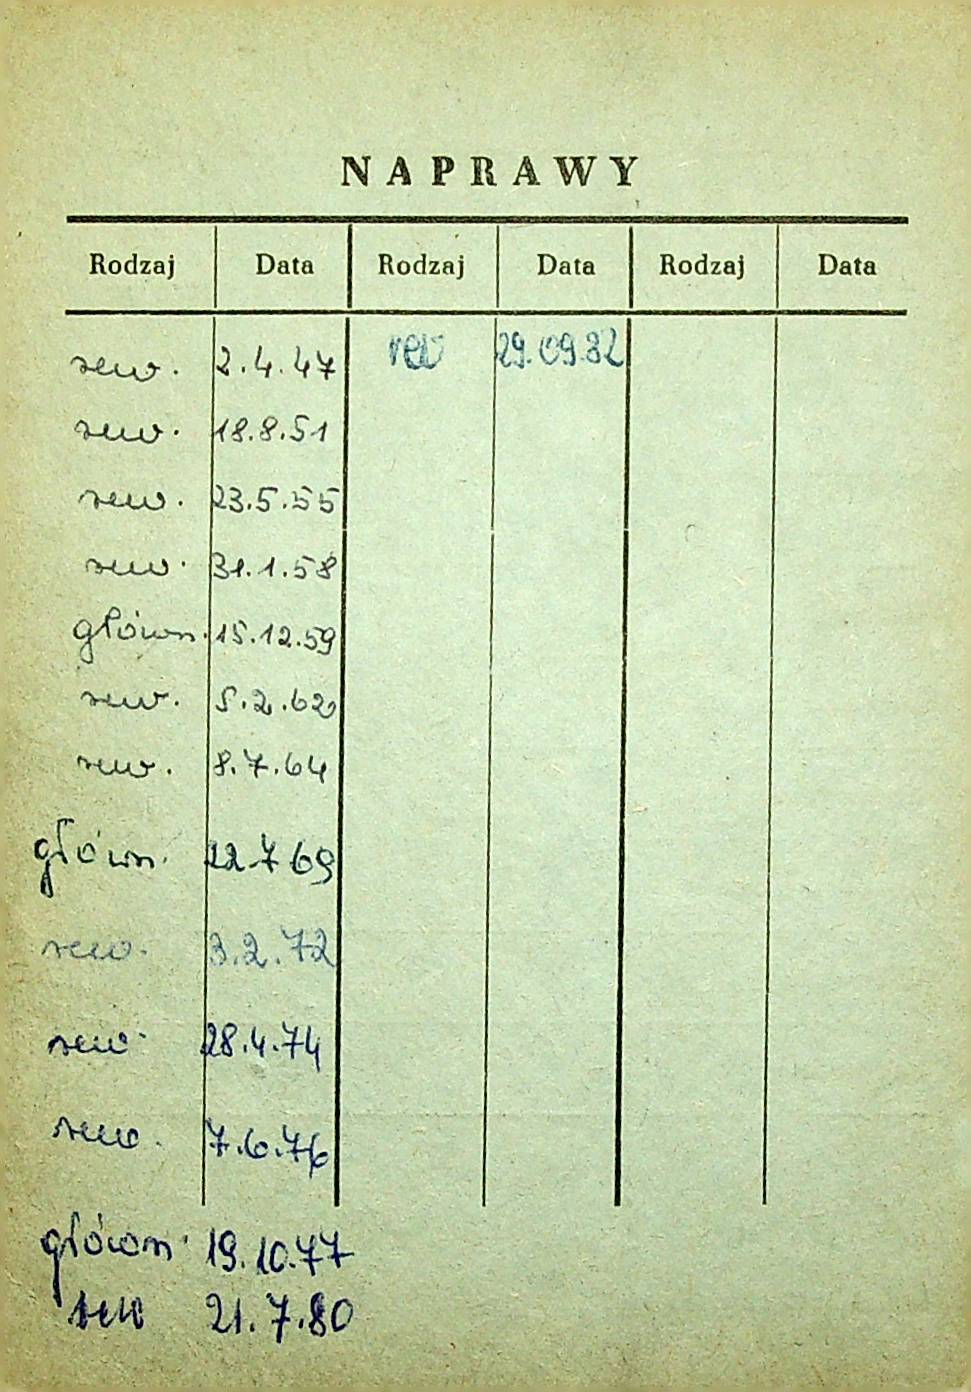 NAPRAWY
Rodzaj Data Rodzaj Data Rodzaj Data
rew. 2.4.47 rew 29.09.82
rew. 18.8.51
rew. 23.5.55
rew. 31.1.58
główn. 15.12.59
rew. 5.2.62
rew. 8.7.64
główn. 22.7.69
rew. 3.2.72
rew. 28.4.74
rew. 7.6.76
główn. 19.10.77
rew 21.7.80